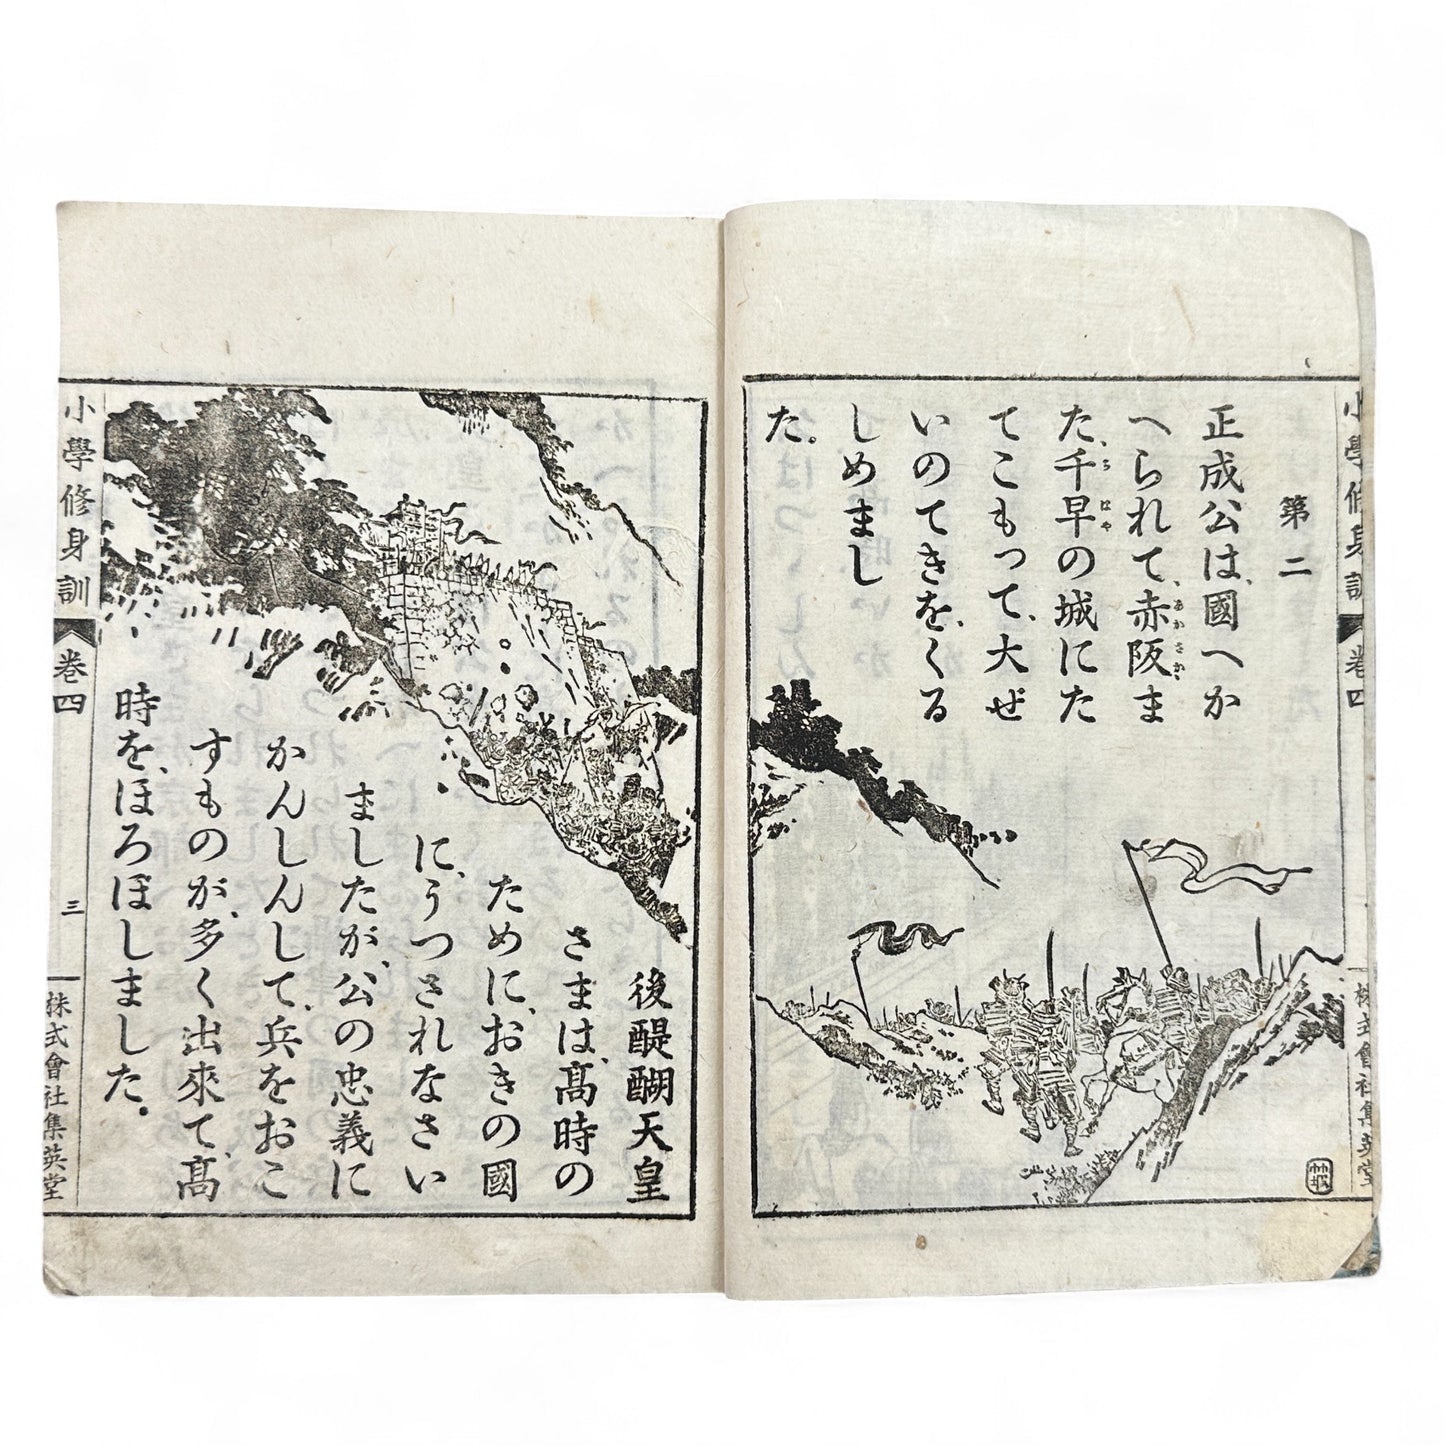 第二
正成公は、國へか
へられて、赤阪ま
た、千早の城にた
てこもって、大ぜ
いのてきを、くる
しめまし
た。
小學修身訓
卷四
株式會社集英堂
後醍醐天皇
さまは、高時の
ために、おきの國
に、うつされなさい
ましたが、公の忠義に
かんしんして、兵をおこ
すものが、多く出來て、高
時を、ほろぼしました。
小學修身訓
卷四
三
株式會社集英堂